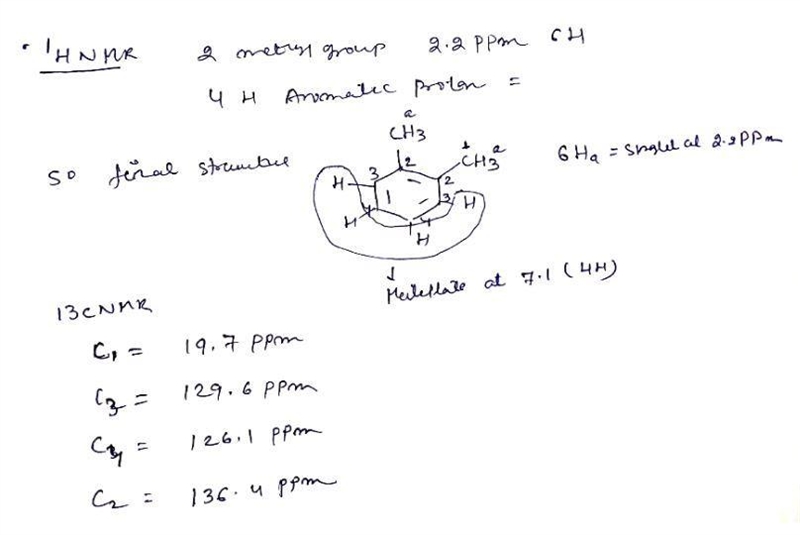 1HNMR 2 methyl group 2.2 PPm 6H
4 H Aromatic proton =
a
CH3
so final structure
3 2 CH3 a
6Ha = singlet at 2.2 PPm
H 2
1 3 H
H 4 4
H
Multiplate at 7.1 (4H)
13CNMR
C1 = 19.7 PPm
C3 = 129.6 PPm
C4 = 126.1 PPm
C2 = 136.4 PPm